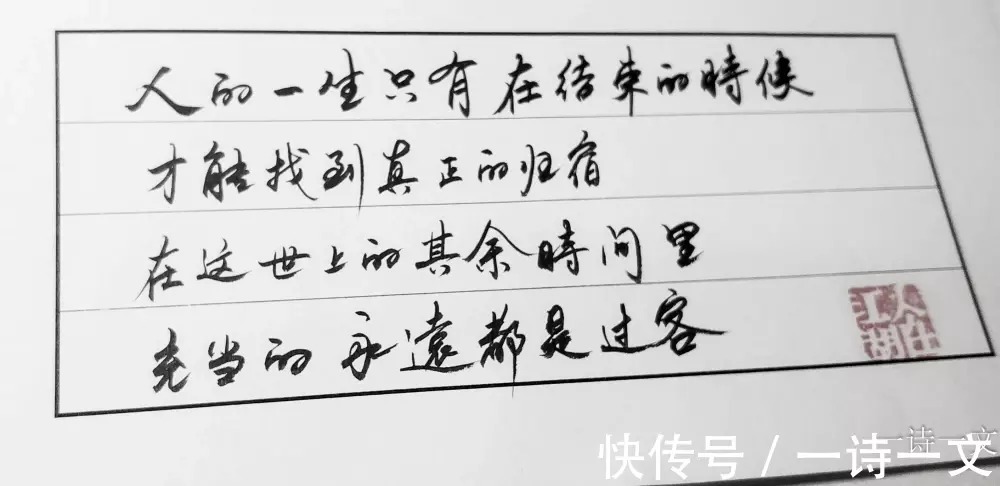 人的一生只有在结束的時候
才能找到真正的归宿
在这世上的其余時间里
充当的永遠都是过客
一诗一文
快传号 / 一诗一文